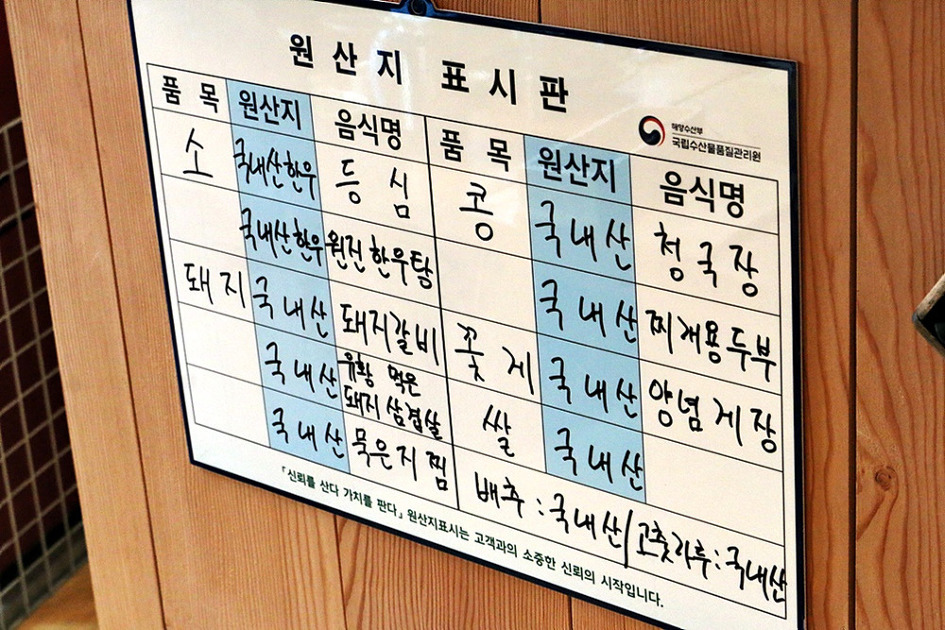 원산지 표시판
해양수산부
국립수산물품질관리원
품목 원산지 음식명
소 국내산한우 등심
국내산한우 원진한우탕
돼지 국내산 돼지갈비
국내산 유황 먹은 돼지 삼겹살
국내산 묵은지찜
품목 원산지 음식명
콩 국내산 청국장
국내산 찌개용두부
꽃게 국내산 양념게장
쌀 국내산
배추:국내산/고춧가루:국내산
「신뢰를 산다 가치를 판다」 원산지표시는 고객과의 소중한 신뢰의 시작입니다.